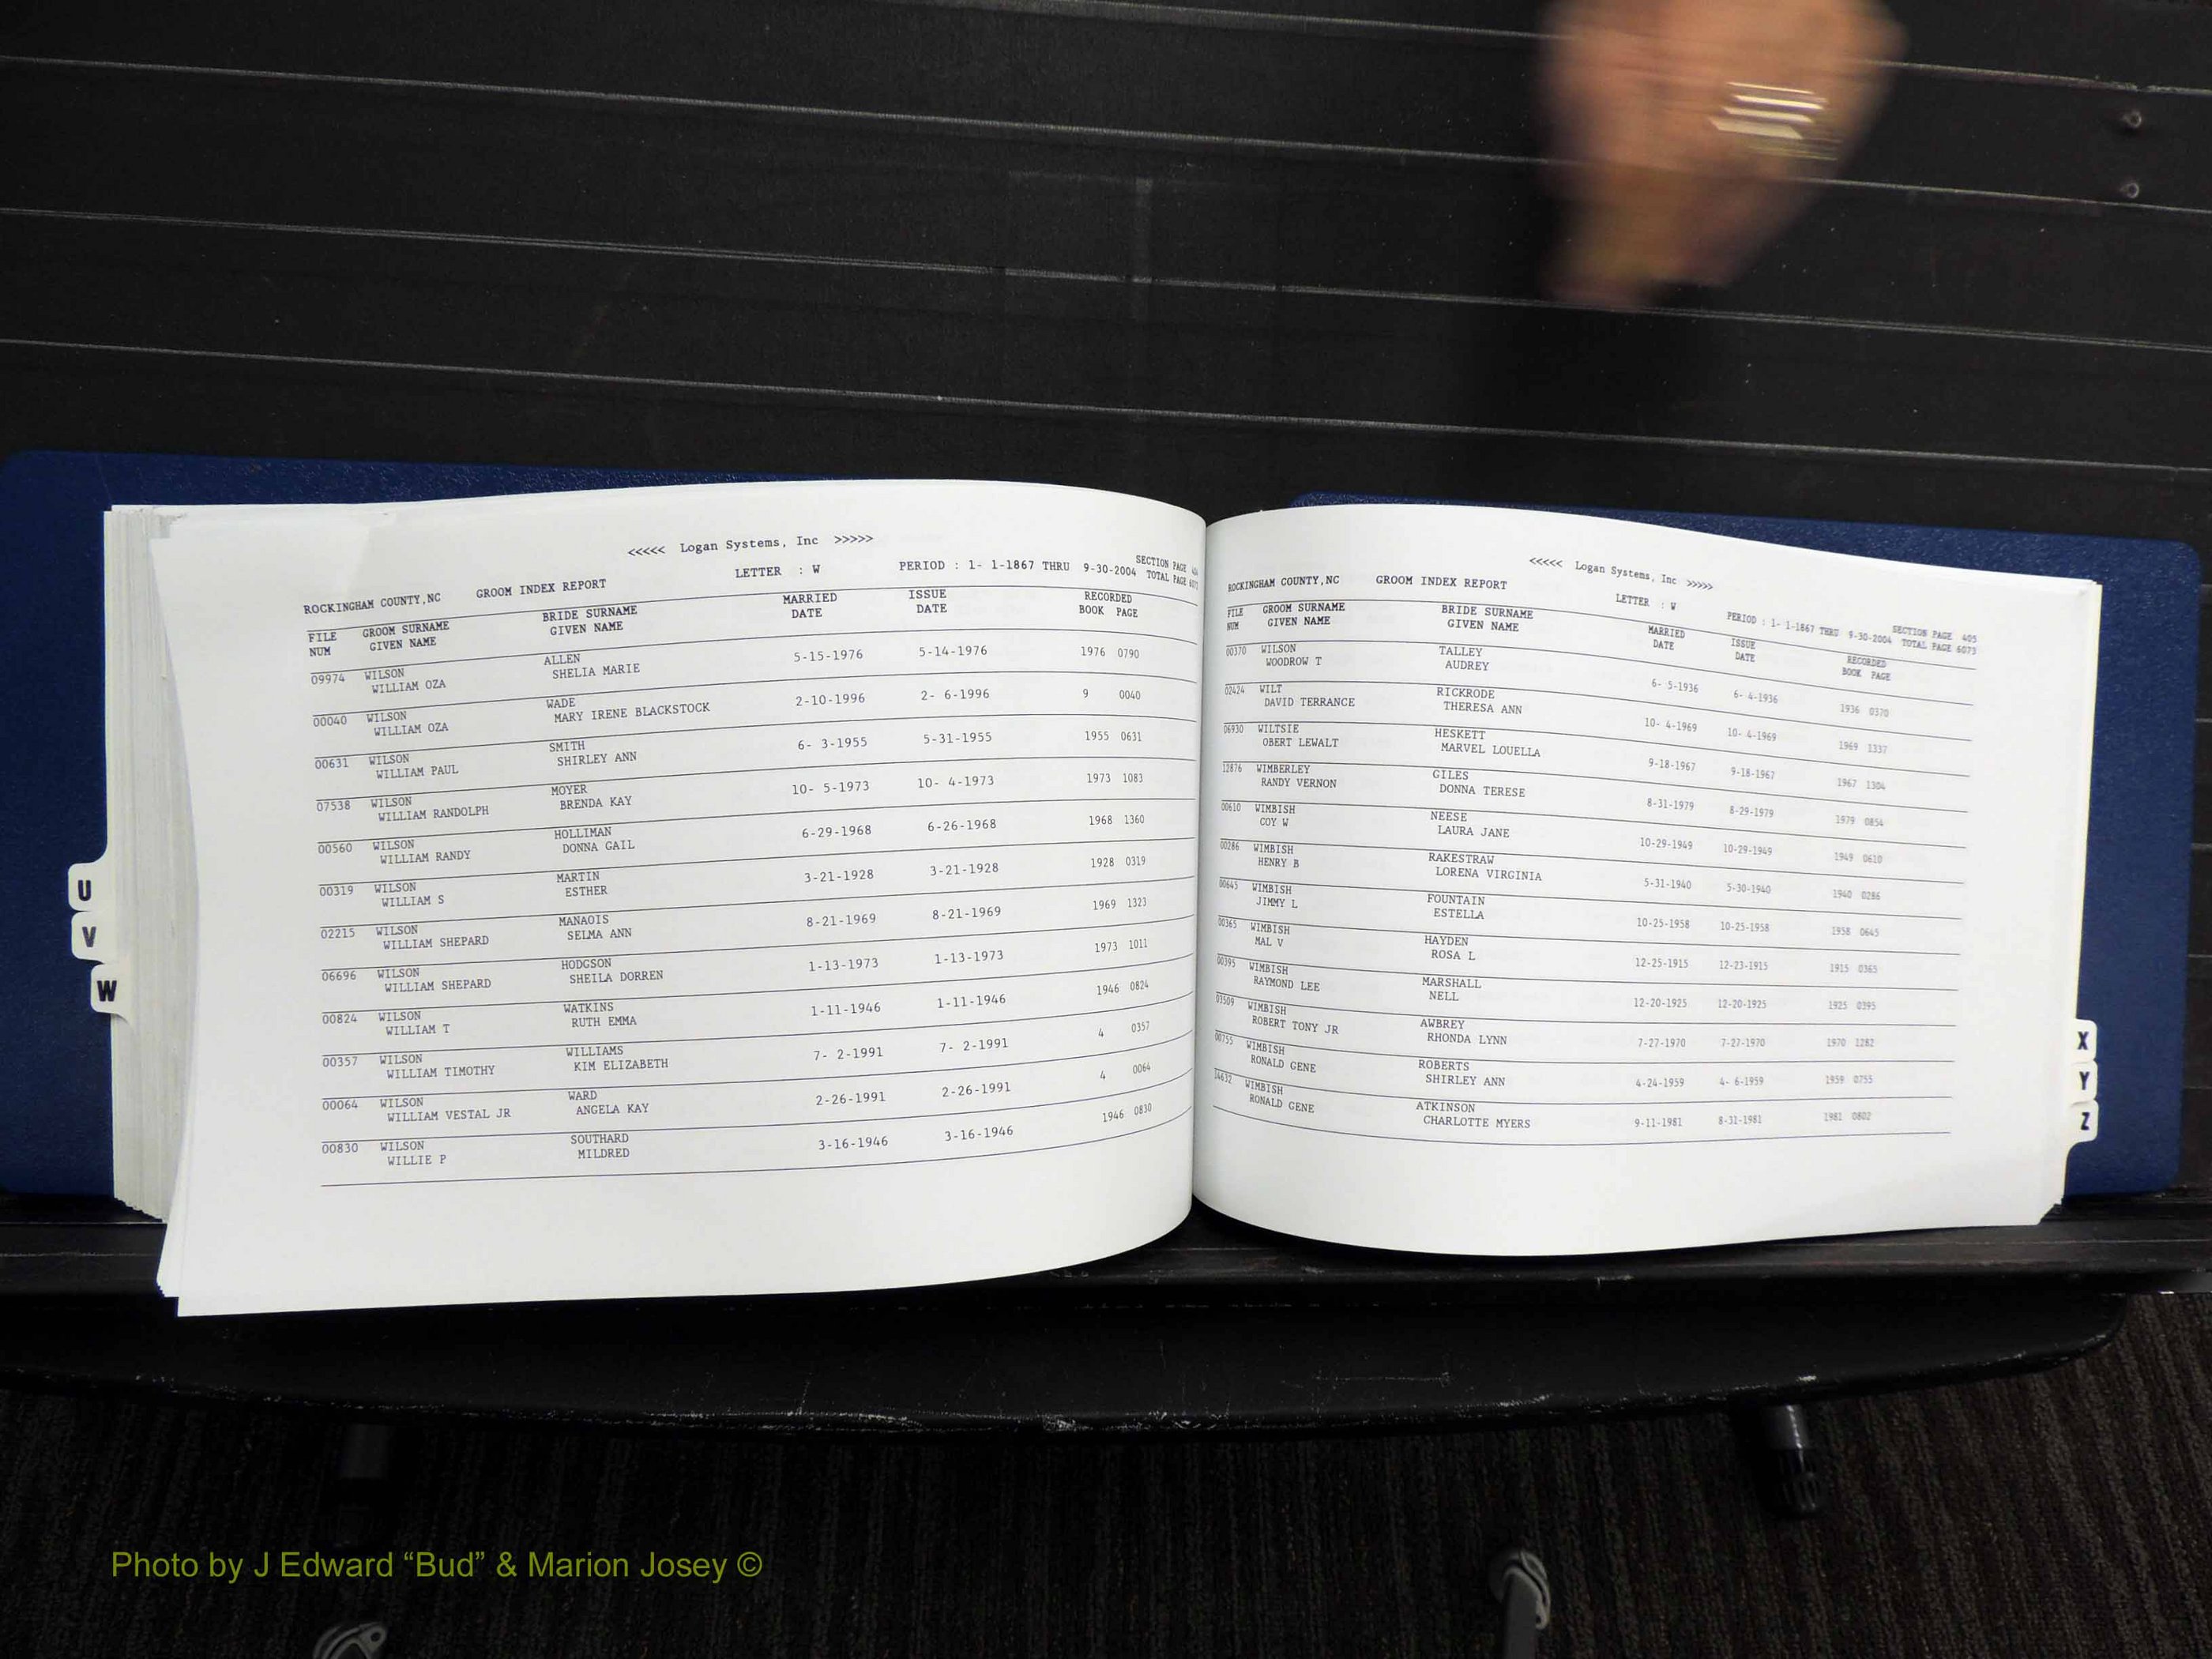 <<<<< Logan Systems, Inc >>>>>
ROCKINGHAM COUNTY,NC GROOM INDEX REPORT LETTER : W PERIOD : 1- 1-1867 THRU 9-30-2004 SECTION PAGE
TOTAL PAGE
FILE GROOM SURNAME BRIDE SURNAME MARRIED ISSUE RECORDED
NUM GIVEN NAME GIVEN NAME DATE DATE BOOK PAGE
09974 WILSON ALLEN 5-15-1976 5-14-1976 1976 0790
WILLIAM OZA SHELIA MARIE
00040 WILSON WADE 2-10-1996 2- 6-1996 9 0040
WILLIAM OZA MARY IRENE BLACKSTOCK
00631 WILSON SMITH 6- 3-1955 5-31-1955 1955 0631
WILLIAM PAUL SHIRLEY ANN
07538 WILSON MOYER 10- 5-1973 10- 4-1973 1973 1083
WILLIAM RANDOLPH BRENDA KAY
00560 WILSON HOLLIMAN 6-29-1968 6-26-1968 1968 1360
WILLIAM RANDY DONNA GAIL
00319 WILSON MARTIN 3-21-1928 3-21-1928 1928 0319
WILLIAM S ESTHER
02215 WILSON MANAOIS 8-21-1969 8-21-1969 1969 1323
WILLIAM SHEPARD SELMA ANN
06696 WILSON HODGSON 1-13-1973 1-13-1973 1973 1011
WILLIAM SHEPARD SHEILA DORREN
00824 WILSON WATKINS 1-11-1946 1-11-1946 1946 0824
WILLIAM T RUTH EMMA
00357 WILSON WILLIAMS 7- 2-1991 7- 2-1991 4 0357
WILLIAM TIMOTHY KIM ELIZABETH
00064 WILSON WARD 2-26-1991 2-26-1991 4 0064
WILLIAM VESTAL JR ANGELA KAY
00830 WILSON SOUTHARD 3-16-1946 3-16-1946 1946 0830
WILLIE P MILDRED
U
V
W
<<<<< Logan Systems, Inc >>>>>
ROCKINGHAM COUNTY,NC GROOM INDEX REPORT LETTER : W PERIOD : 1- 1-1867 THRU 9-30-2004 SECTION PAGE 405
TOTAL PAGE 6073
FILE GROOM SURNAME BRIDE SURNAME MARRIED ISSUE RECORDED
NUM GIVEN NAME GIVEN NAME DATE DATE BOOK PAGE
00370 WILSON TALLEY 6- 5-1936 6- 4-1936 1936 0370
WOODROW T AUDREY
02424 WILT RICKRODE 10- 4-1969 10- 4-1969 1969 1337
DAVID TERRANCE THERESA ANN
06930 WILTSIE HESKETT 9-18-1967 9-18-1967 1967 1304
OBERT LEWALT MARVEL LOUELLA
12876 WIMBERLEY GILES 8-31-1979 8-29-1979 1979 0854
RANDY VERNON DONNA TERESE
00610 WIMBISH NEESE 10-29-1949 10-29-1949 1949 0610
COY W LAURA JANE
00286 WIMBISH RAKESTRAW 5-31-1940 5-30-1940 1940 0286
HENRY B LORENA VIRGINIA
00645 WIMBISH FOUNTAIN 10-25-1958 10-25-1958 1958 0645
JIMMY L ESTELLA
00365 WIMBISH HAYDEN 12-25-1915 12-23-1915 1915 0365
MAL V ROSA L
00395 WIMBISH MARSHALL 12-20-1925 12-20-1925 1925 0395
RAYMOND LEE NELL
03509 WIMBISH AWBREY 7-27-1970 7-27-1970 1970 1282
ROBERT TONY JR RHONDA LYNN
00755 WIMBISH ROBERTS 4-24-1959 4- 6-1959 1959 0755
RONALD GENE SHIRLEY ANN
14632 WIMBISH ATKINSON 9-11-1981 8-31-1981 1981 0802
RONALD GENE CHARLOTTE MYERS
X
Y
Z
Photo by J Edward “Bud” & Marion Josey ©